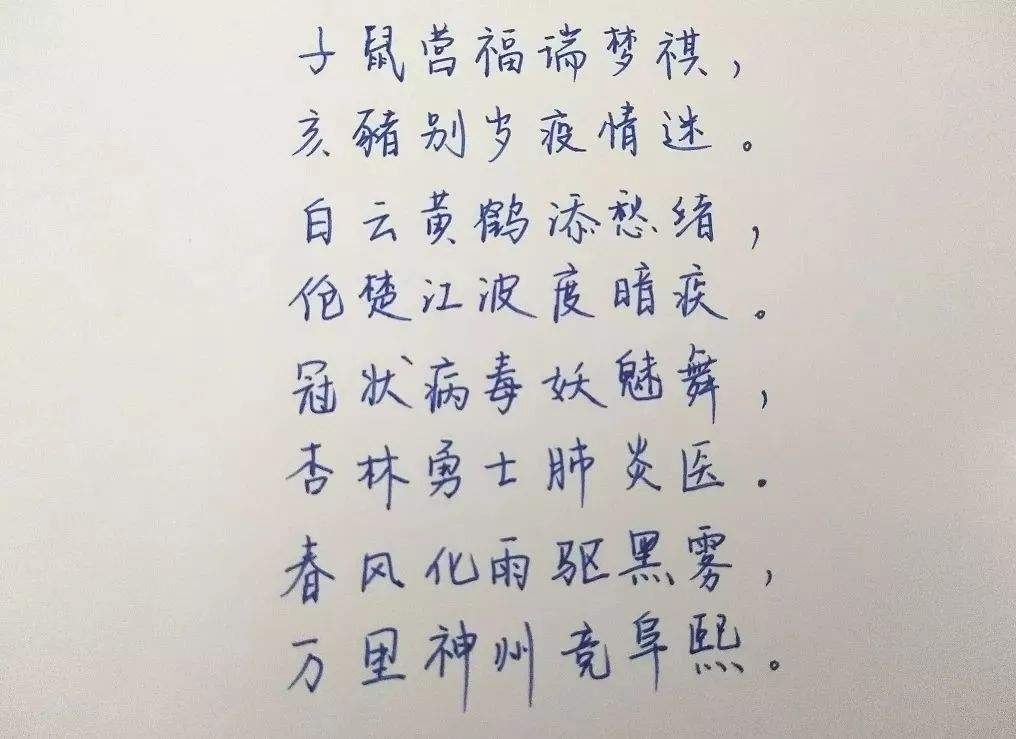 子鼠营福瑞梦祺，
亥豬别岁疫情迷。
白云黄鹤添愁绪，
伧楚江波度暗疾。
冠状病毒妖魅舞，
杏林勇士肺炎医。
春风化雨驱黑雾，
万里神州竞阜熙。